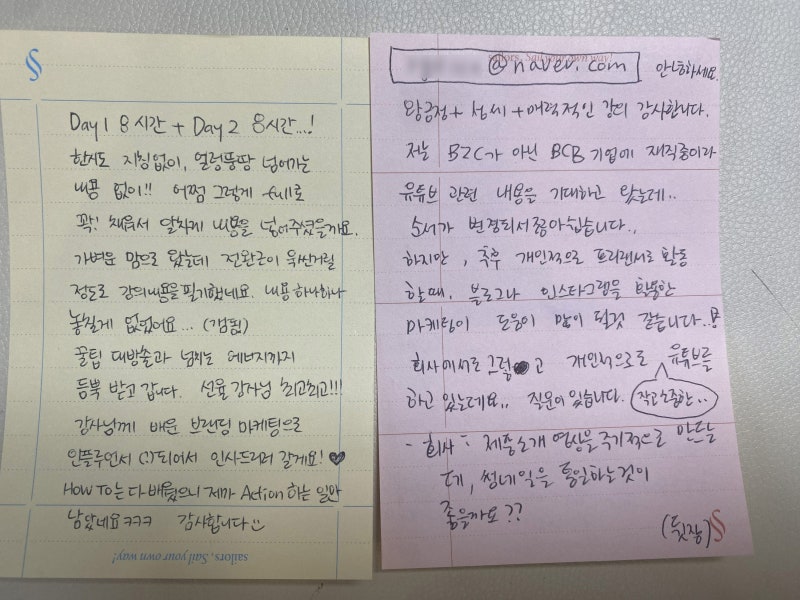 Day1 8시간 + Day2 8시간...!
한시도 지침없이, 얼렁뚱땅 넘어가는
내용 없이!! 어쩜 그렇게 full로
꽉! 채워서 알차게 내용을 넣어주셨을까요.
가벼운 맘으로 왔는데 전완근이 욱씬거릴
정도로 강의내용을 필기했네요. 내용 하나하나
놓칠게 없었어요... (갬동)
꿀팁 대방출과 넘치는 에너지까지
듬뿍 받고 갑니다. 선율 강사님 최고최고!!!
강사님께 배운 브랜딩 마케팅으로
인플루언서 (?)되어서 인사드리러 갈게요! ♥
How To는 다 배웠으니 제가 Action 하는 일만
남았네요ㅋㅋㅋ 감사합니다
sailors, Sail your own way!
sailors, Sail your own way!
@naver.com 안녕하세요.
왕긍정 + 섬세 + 매력적인 강의 감사합니다.
저는 B2C가 아닌 BCB 기업에 재직중이라
유튜브 관련 내용을 기대하고 왔는데..
순서가 변경되서 좀 아쉽습니다..
하지만, 추후 개인적으로 프리랜서로 활동
할때, 블로그나 인스타그램을 활용한
마케팅이 도움이 많이 될것 같습니다..!!
회사에서도 그렇고 개인적으로 유튜브를
하고 있는데요.. 질문이 있습니다. 작고소중한..
- 회사 : 제품소개 영상을 주기적으로 만드는
데, 썸네일을 통일하는것이
좋을까요??
(뒷장)